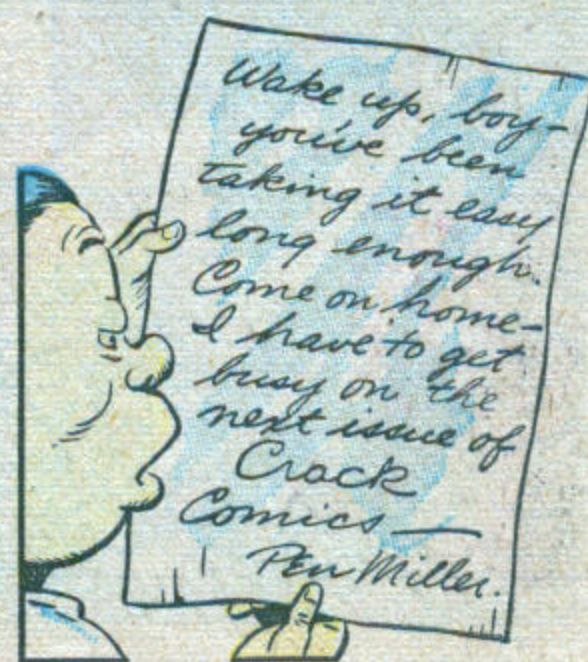 Wake up, boy-
you've been
taking it easy
long enough.
Come on home-
I have to get
busy on the
next issue of
Crack
Comics —
Pen Miller.